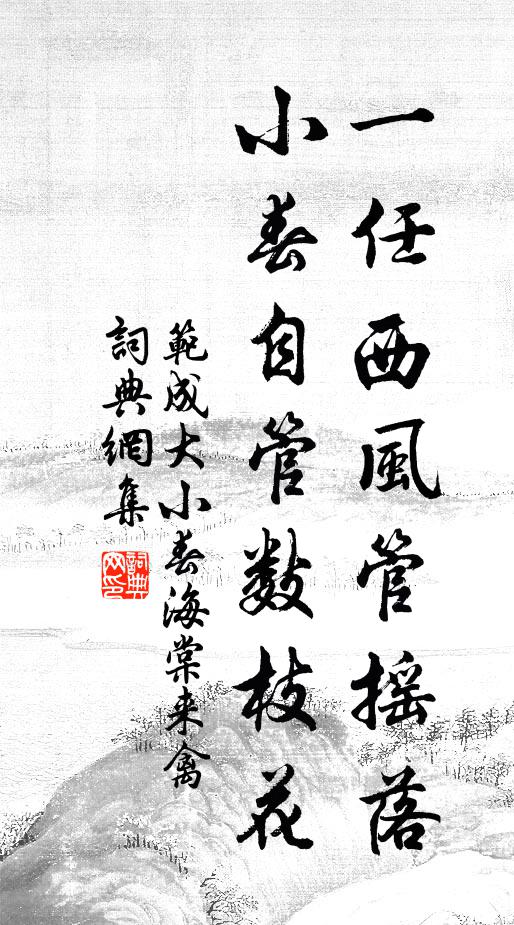 一任西風管摇落
小春自管數枝花
範成大小春海棠来禽
詞典網集
詞典网印